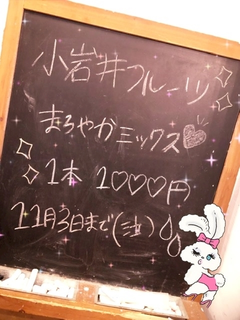 小岩井フルーツ
まろやかミックス♡
1本 1♡♡♡円
11月3日まで(泣)